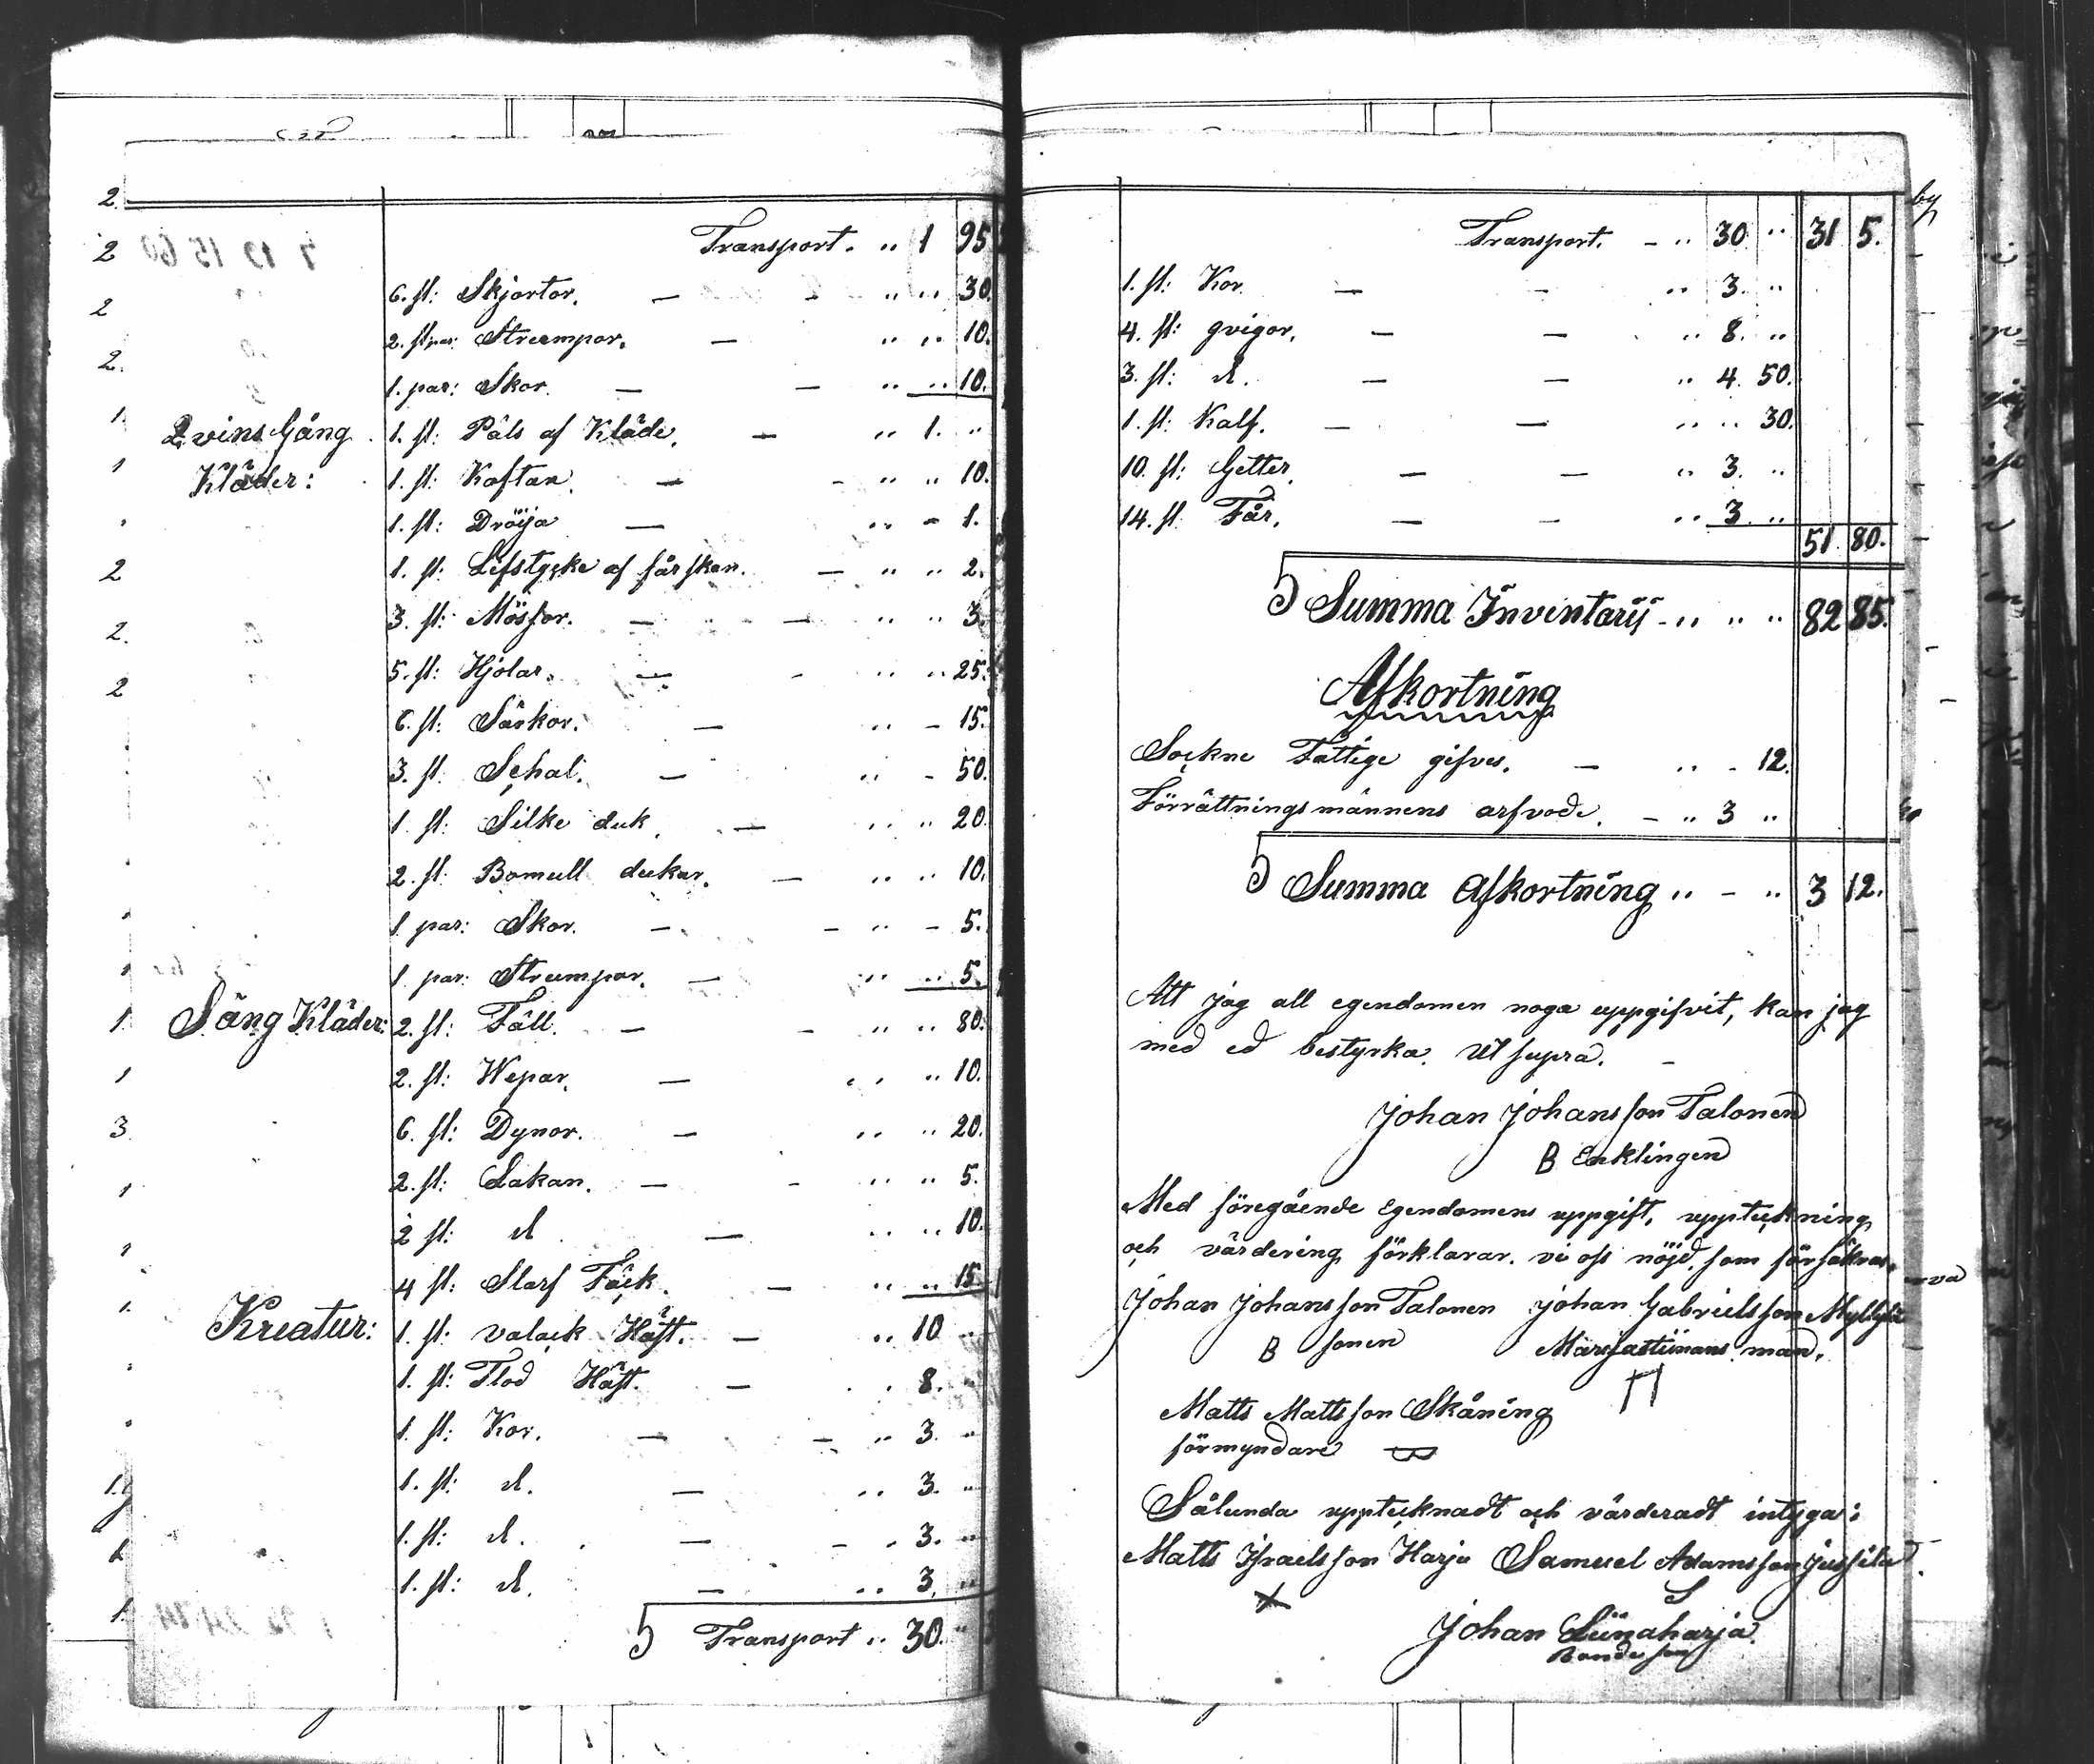 Transport. .. 1 95
6. st: Skjortor. — - .. .. 30.
2. st par: Strumpor. — .. .. 10.
1. par: Skor. — - .. .. 10.
Qvins Gång 1. st: Päls af Kläde. — .. 1. ..
Kläder: 1. st: Kaftan. — - .. .. 10.
1. st: Dröija — .. - 1.
1. st: Lifstycke af fårskan. — .. .. 2.
3. st: Mössor. — - .. .. 3.
5. st: Kjolar. — - .. .. 25.
6. st: Särkor. — .. - 15.
3. st. Schal. — .. - 50.
1. st: Silke duk. — .. .. 20.
2. st: Bomull dukar. — .. .. 10.
1 par: Skor. — - .. - 5.
1 par: Strumpor. — .. .. 5.
Säng Kläder: 2. st: Fäll. — - .. .. 80.
2. st: Wepar. — .. .. 10.
6. st: Dynor. — .. .. 20.
2. st: Lakan. — - .. .. 5.
2 st: d — .. .. 10.
4 st: Slarf Täck. — .. .. 15.
Kreatur: 1. st: valack Häst. — .. 10 ..
1. st: Stod Häst. — .. 8. ..
1. st: Kor. — - .. 3. ..
1. st: d. — .. 3. ..
1. st: d. — - . 3. ..
1. st: d. — .. 3. ..
Transport .. 30. ..
Transport. - .. 30 .. 31 5.
1. st: Kor. — - .. 3. ..
4. st: qvigor. — — .. 8. ..
3. st: d. — — .. 4. 50.
1. st: Kalf. — — .. .. 30.
10. st: Getter. — — .. 3. ..
14. st. Får. — - .. 3. ..
51. 80.
Summa Inventarij - .. .. .. 82 85.
Afkortning
Sockne Fattige gifves. — .. - 12.
Förrättningsmännens arfvode. - .. 3 ..
Summa Afkortning .. - .. 3 12.
Att jag all egendomen noga uppgifvit, kan jag
med ed bestyrka. Ut supra. -
Johan Johansson Talonen
B Enklingen
Med föregående Egendomens uppgift, uppteckning
och värdering förklarar vi oss nöjd, som försäkras.
Johan Johansson Talonen Johan Gabrielsson Myllylä
B sonen Marjastimans man.
Matts Mattsson Skåning
förmyndare
Sålunda upptecknadt och värderadt intyga:
Matts Israelsson Harju Samuel Adamsson Jussila
Johan Liinaharja
Bondeson